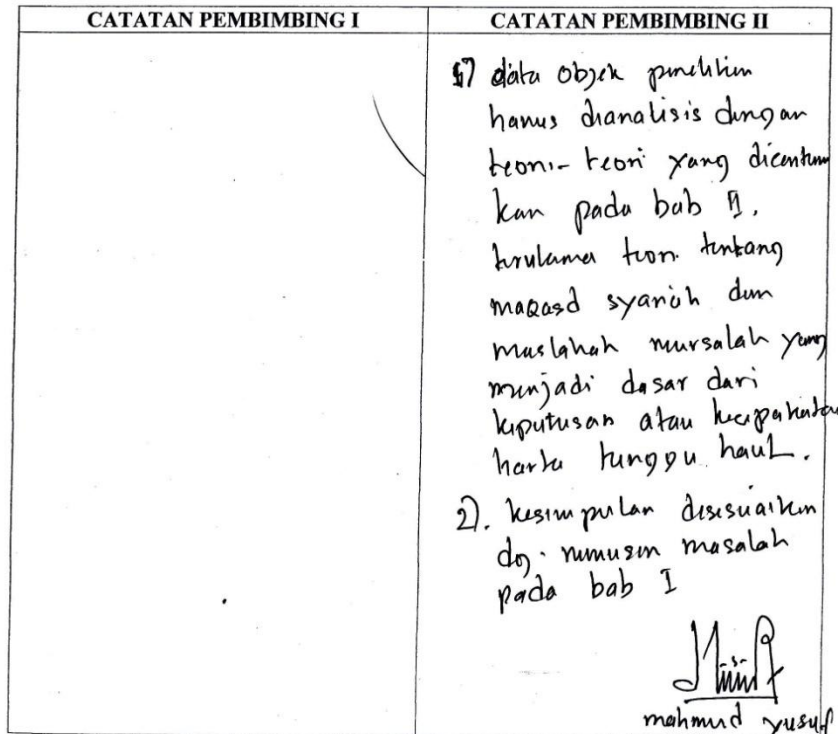 CATATAN PEMBIMBING I
CATATAN PEMBIMBING II
1) data objek penelitian
harus dianalisis dengan
teori-teori yang dicantum
kan pada bab II.
terutama teori tentang
maqasd syariah dan
maslahah mursalah yang
menjadi dasar dari
keputusan atau kesepakatan
harta tunggu haul.
2). kesimpulan disesuaikan
dg. rumusan masalah
pada bab I
mahmud yusuf